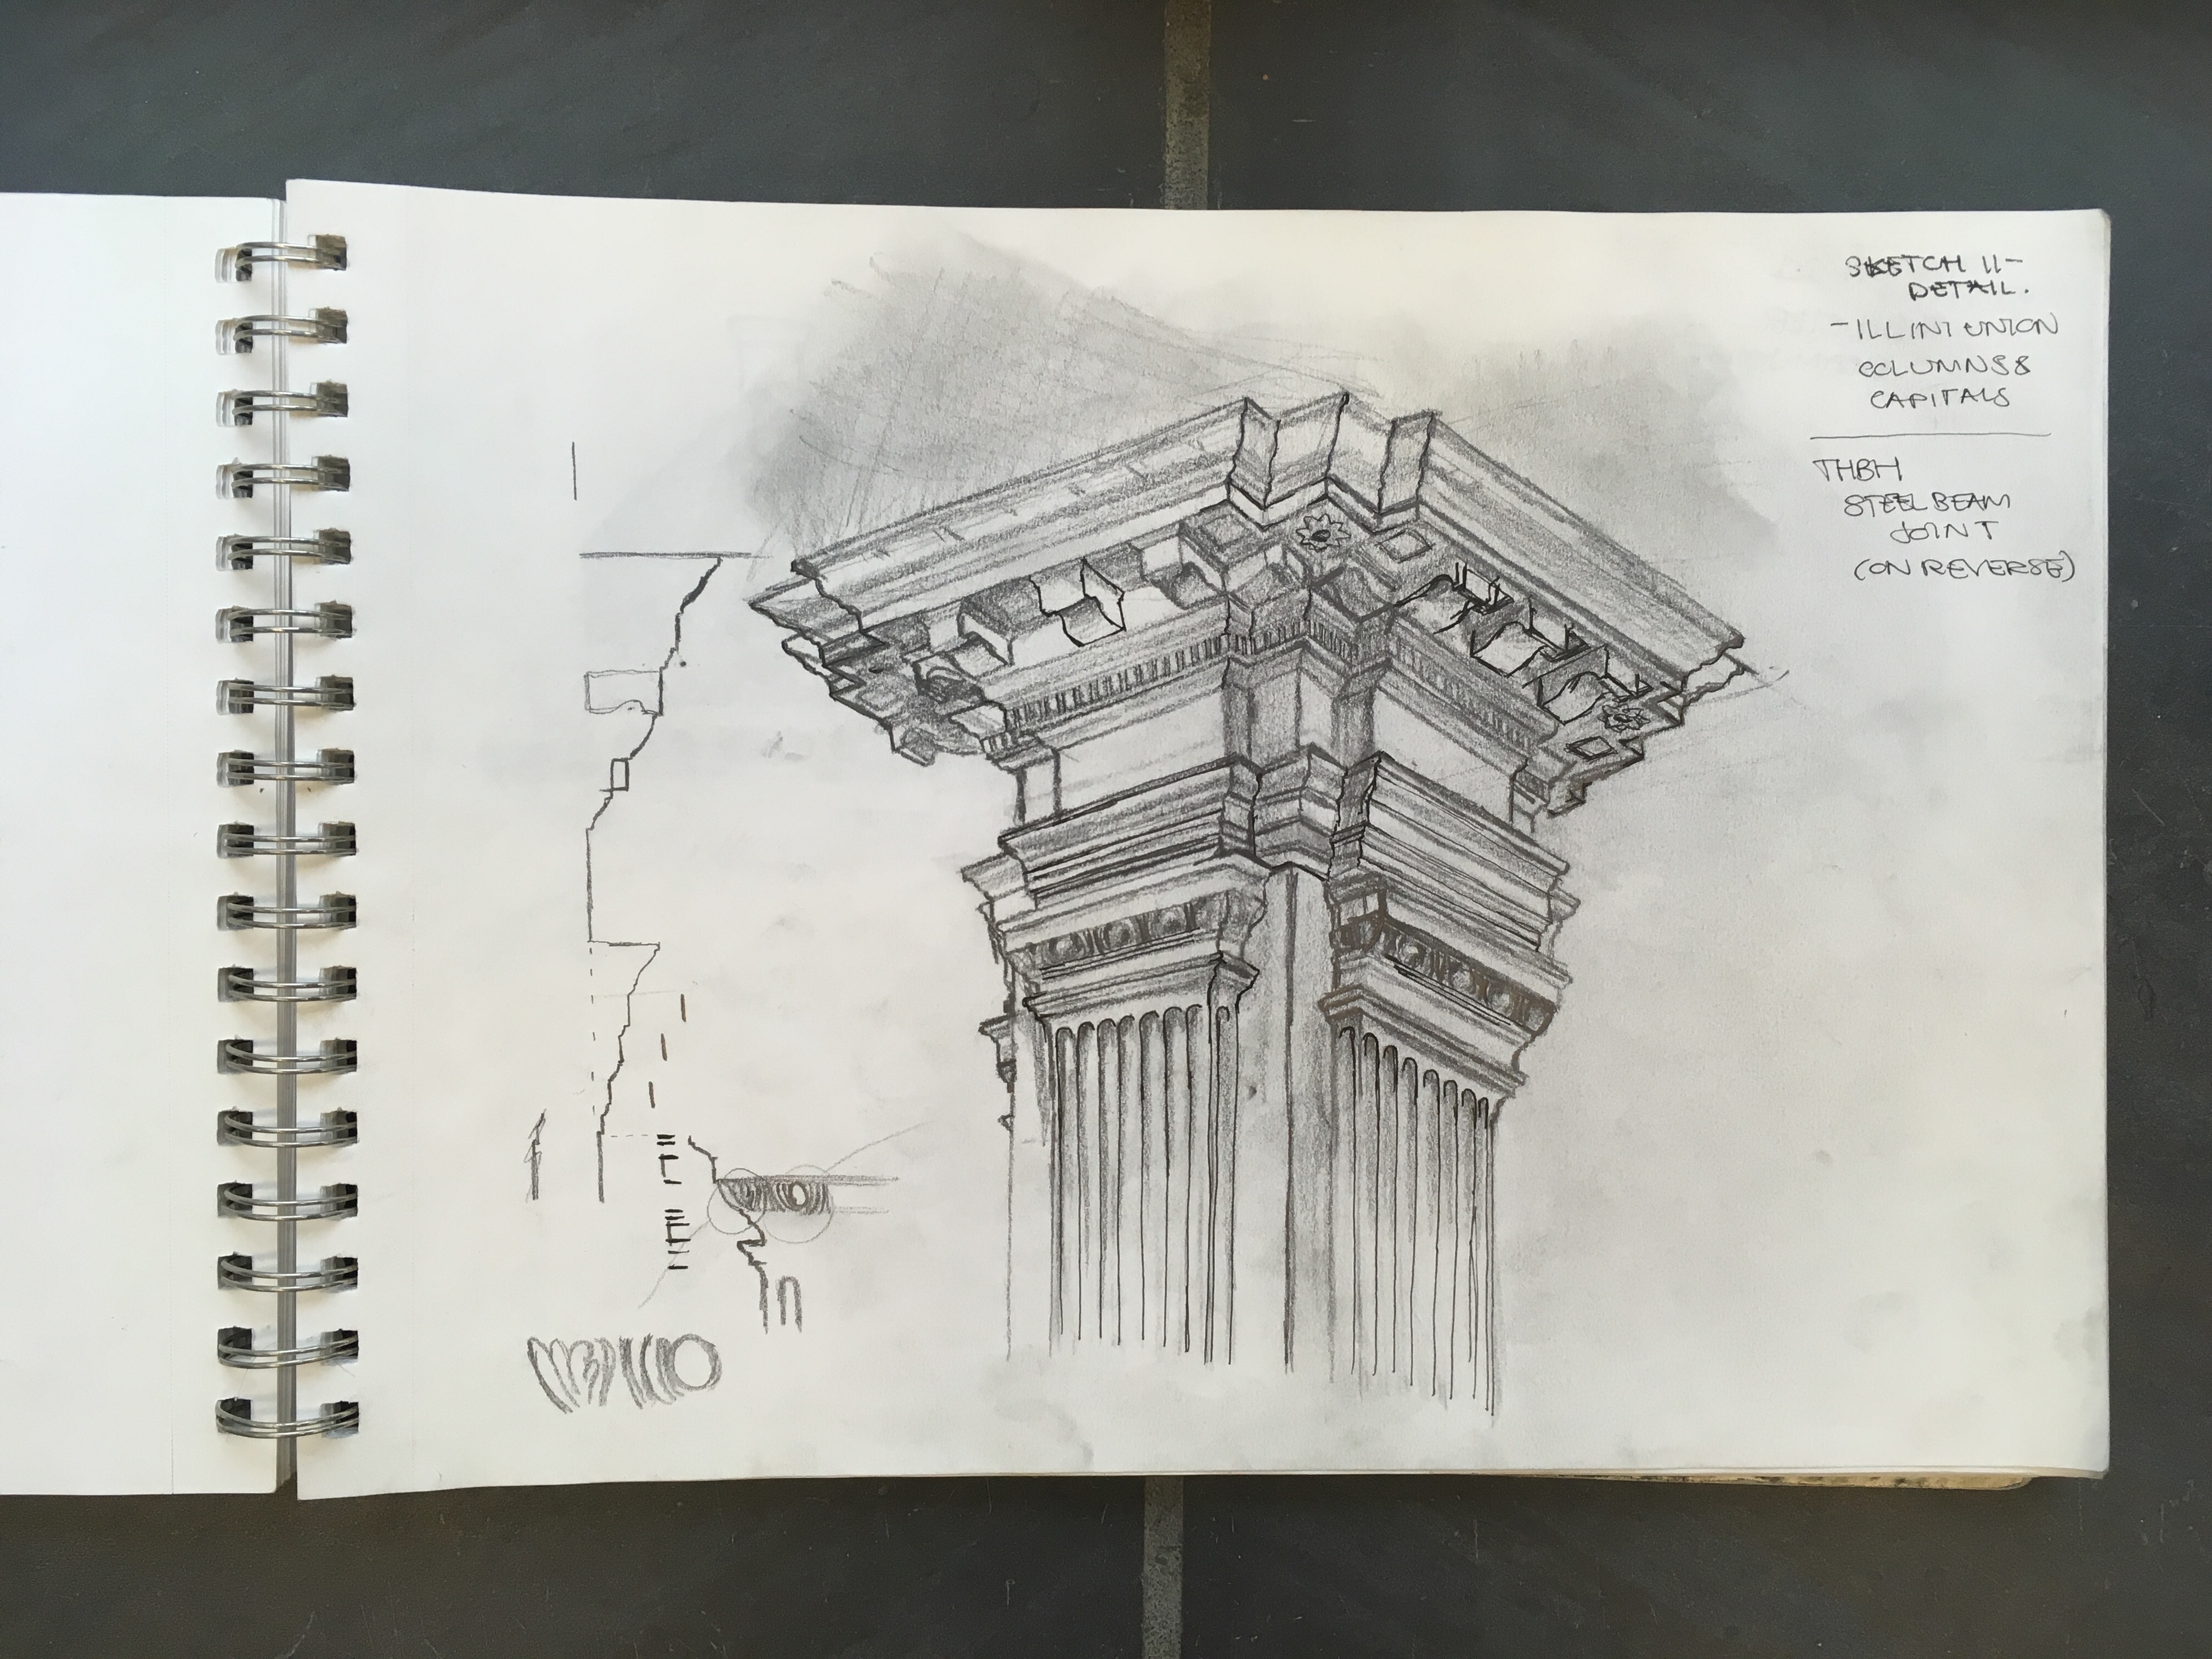 SKETCH 11-
DETAIL.
- ILLINI UNION
COLUMNS &
CAPITALS
THBH
STEEL BEAM
JOINT
(ON REVERSE)